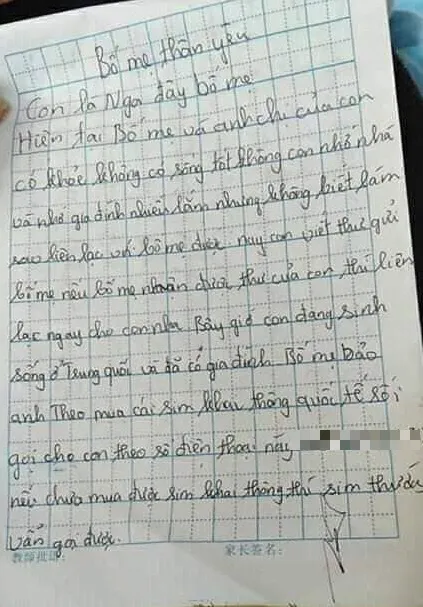 Bố mẹ thân yêu
Con là Nga đây bố mẹ
Hiện tại Bố mẹ và anh chị của con
có khỏe không có sống tốt không con nhớ nhà
và nhớ gia đình nhiều lắm nhưng không biết làm
sao liên lạc với bố mẹ được nay con viết thư gửi
bố mẹ nếu bố mẹ nhận được thư của con, thì liên
lạc ngay cho con nha Bây giờ con đang sinh
sống ở Trung quốc và đã có gia đình Bố mẹ bảo
anh Theo mua cái sim khai thông quốc tế rồi
gọi cho con theo số điện thoai này
nếu chưa mua được sim khai thông thì sim thường
vẫn gọi được.
教师批语: 家长签名: